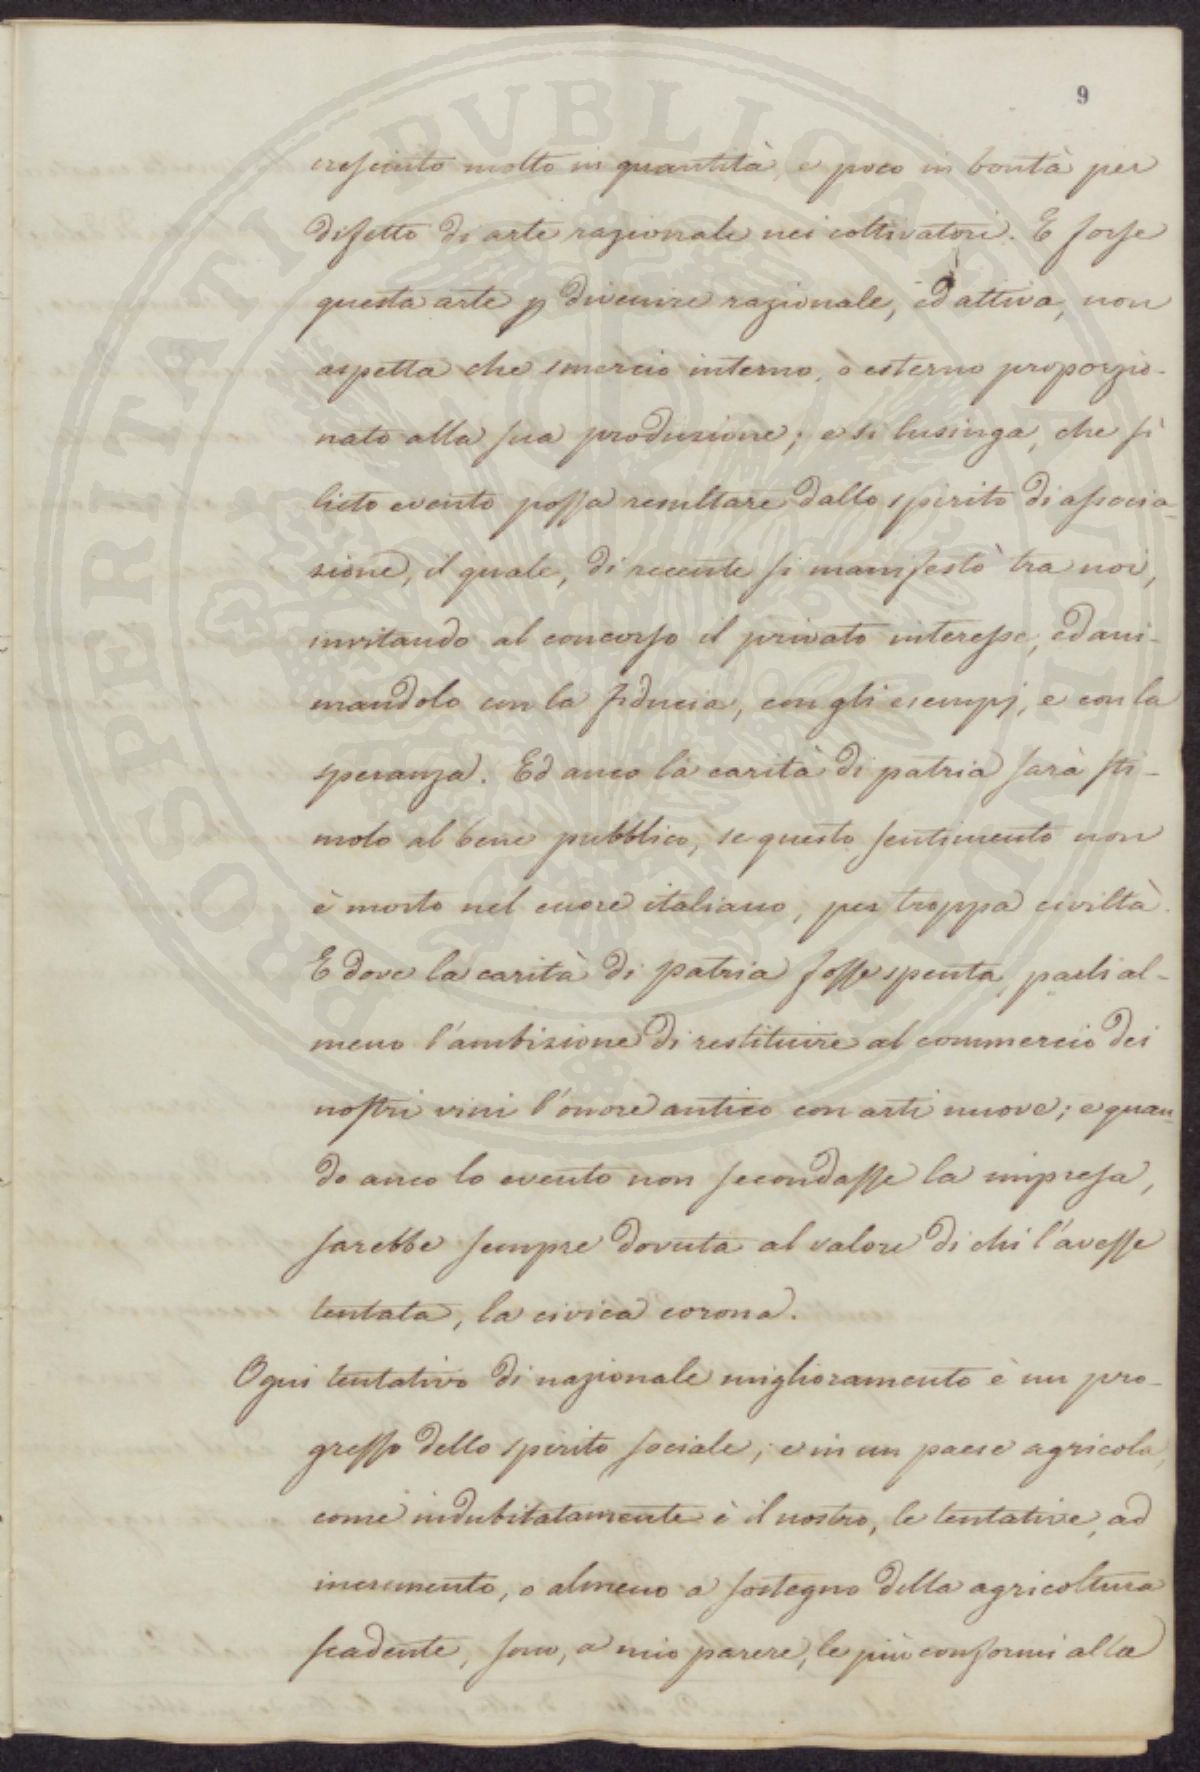 9
cresciuto molto in quantità, e poco in bontà per
difetto di arte razionale nei coltivatori. E forse
questa arte p divenire razionale, ed attiva, non
aspetta che smercio interno, o esterno proporzio-
nato alla sua produzione; e si lusinga, che sì
lieto evento possa resultare dallo spirito di associa-
zione, il quale, di recente si manifestò tra noi,
invitando al concorso il privato interesse, ed ani-
mandolo con la fiducia, con gli esempj, e con la
speranza. Ed anco la carità di patria sarà sti-
molo al bene pubblico, se questo sentimento non
è morto nel cuore italiano, per troppa civiltà.
E dove la carità di patria fosse spenta, parli al-
meno l'ambizione di restituire al commercio dei
nostri vini l'onore antico con arti nuove; e quan-
do anco lo evento non secondasse la impresa,
sarebbe sempre dovuta al valore di chi l'avesse
tentata, la civica corona.
Ogni tentativo di nazionale miglioramento è un pro-
gresso dello spirito sociale; e in un paese agricola,
come indubitatamente è il nostro, le tentative, ad
incremento, o almeno a sostegno della agricoltura
scadente, sono, a mio parere, le più conformi alla
PROSPERITATI PUBLICAE